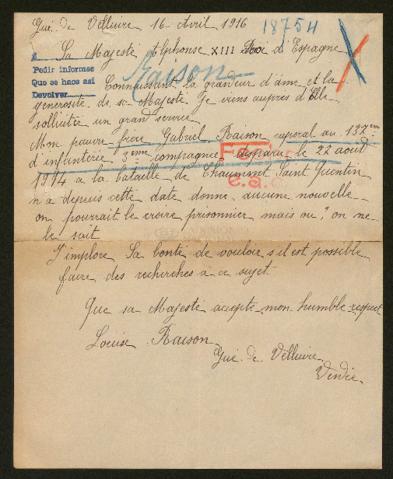 Gué. de Velluire 16 Avril 1916
18754
Sa Majesté Alphonse XIII Roi d'Espagne
Pedir informes
Que se hace así
Devolver
Raison
Connaissant la grandeur d'âme et la
générosité de sa Majesté. Je viens auprès d'Elle
solliciter un grand service
Mon pauvre frère Gabriel Raison caporal au 132ème
d'infanterie 5ème compagnie disparu le 22 août
1914 a la bataille de Saint Quentin
n'a depuis cette date donné aucune nouvelle
on pourrait le croire prisonnier mais où? on ne
le sait
J'implore Sa bonté de vouloir s'il est possible
faire des recherches a ce sujet.
Que sa Majesté accepte mon humble respect
Louise Raison
Gué. de Velluire
Vendée